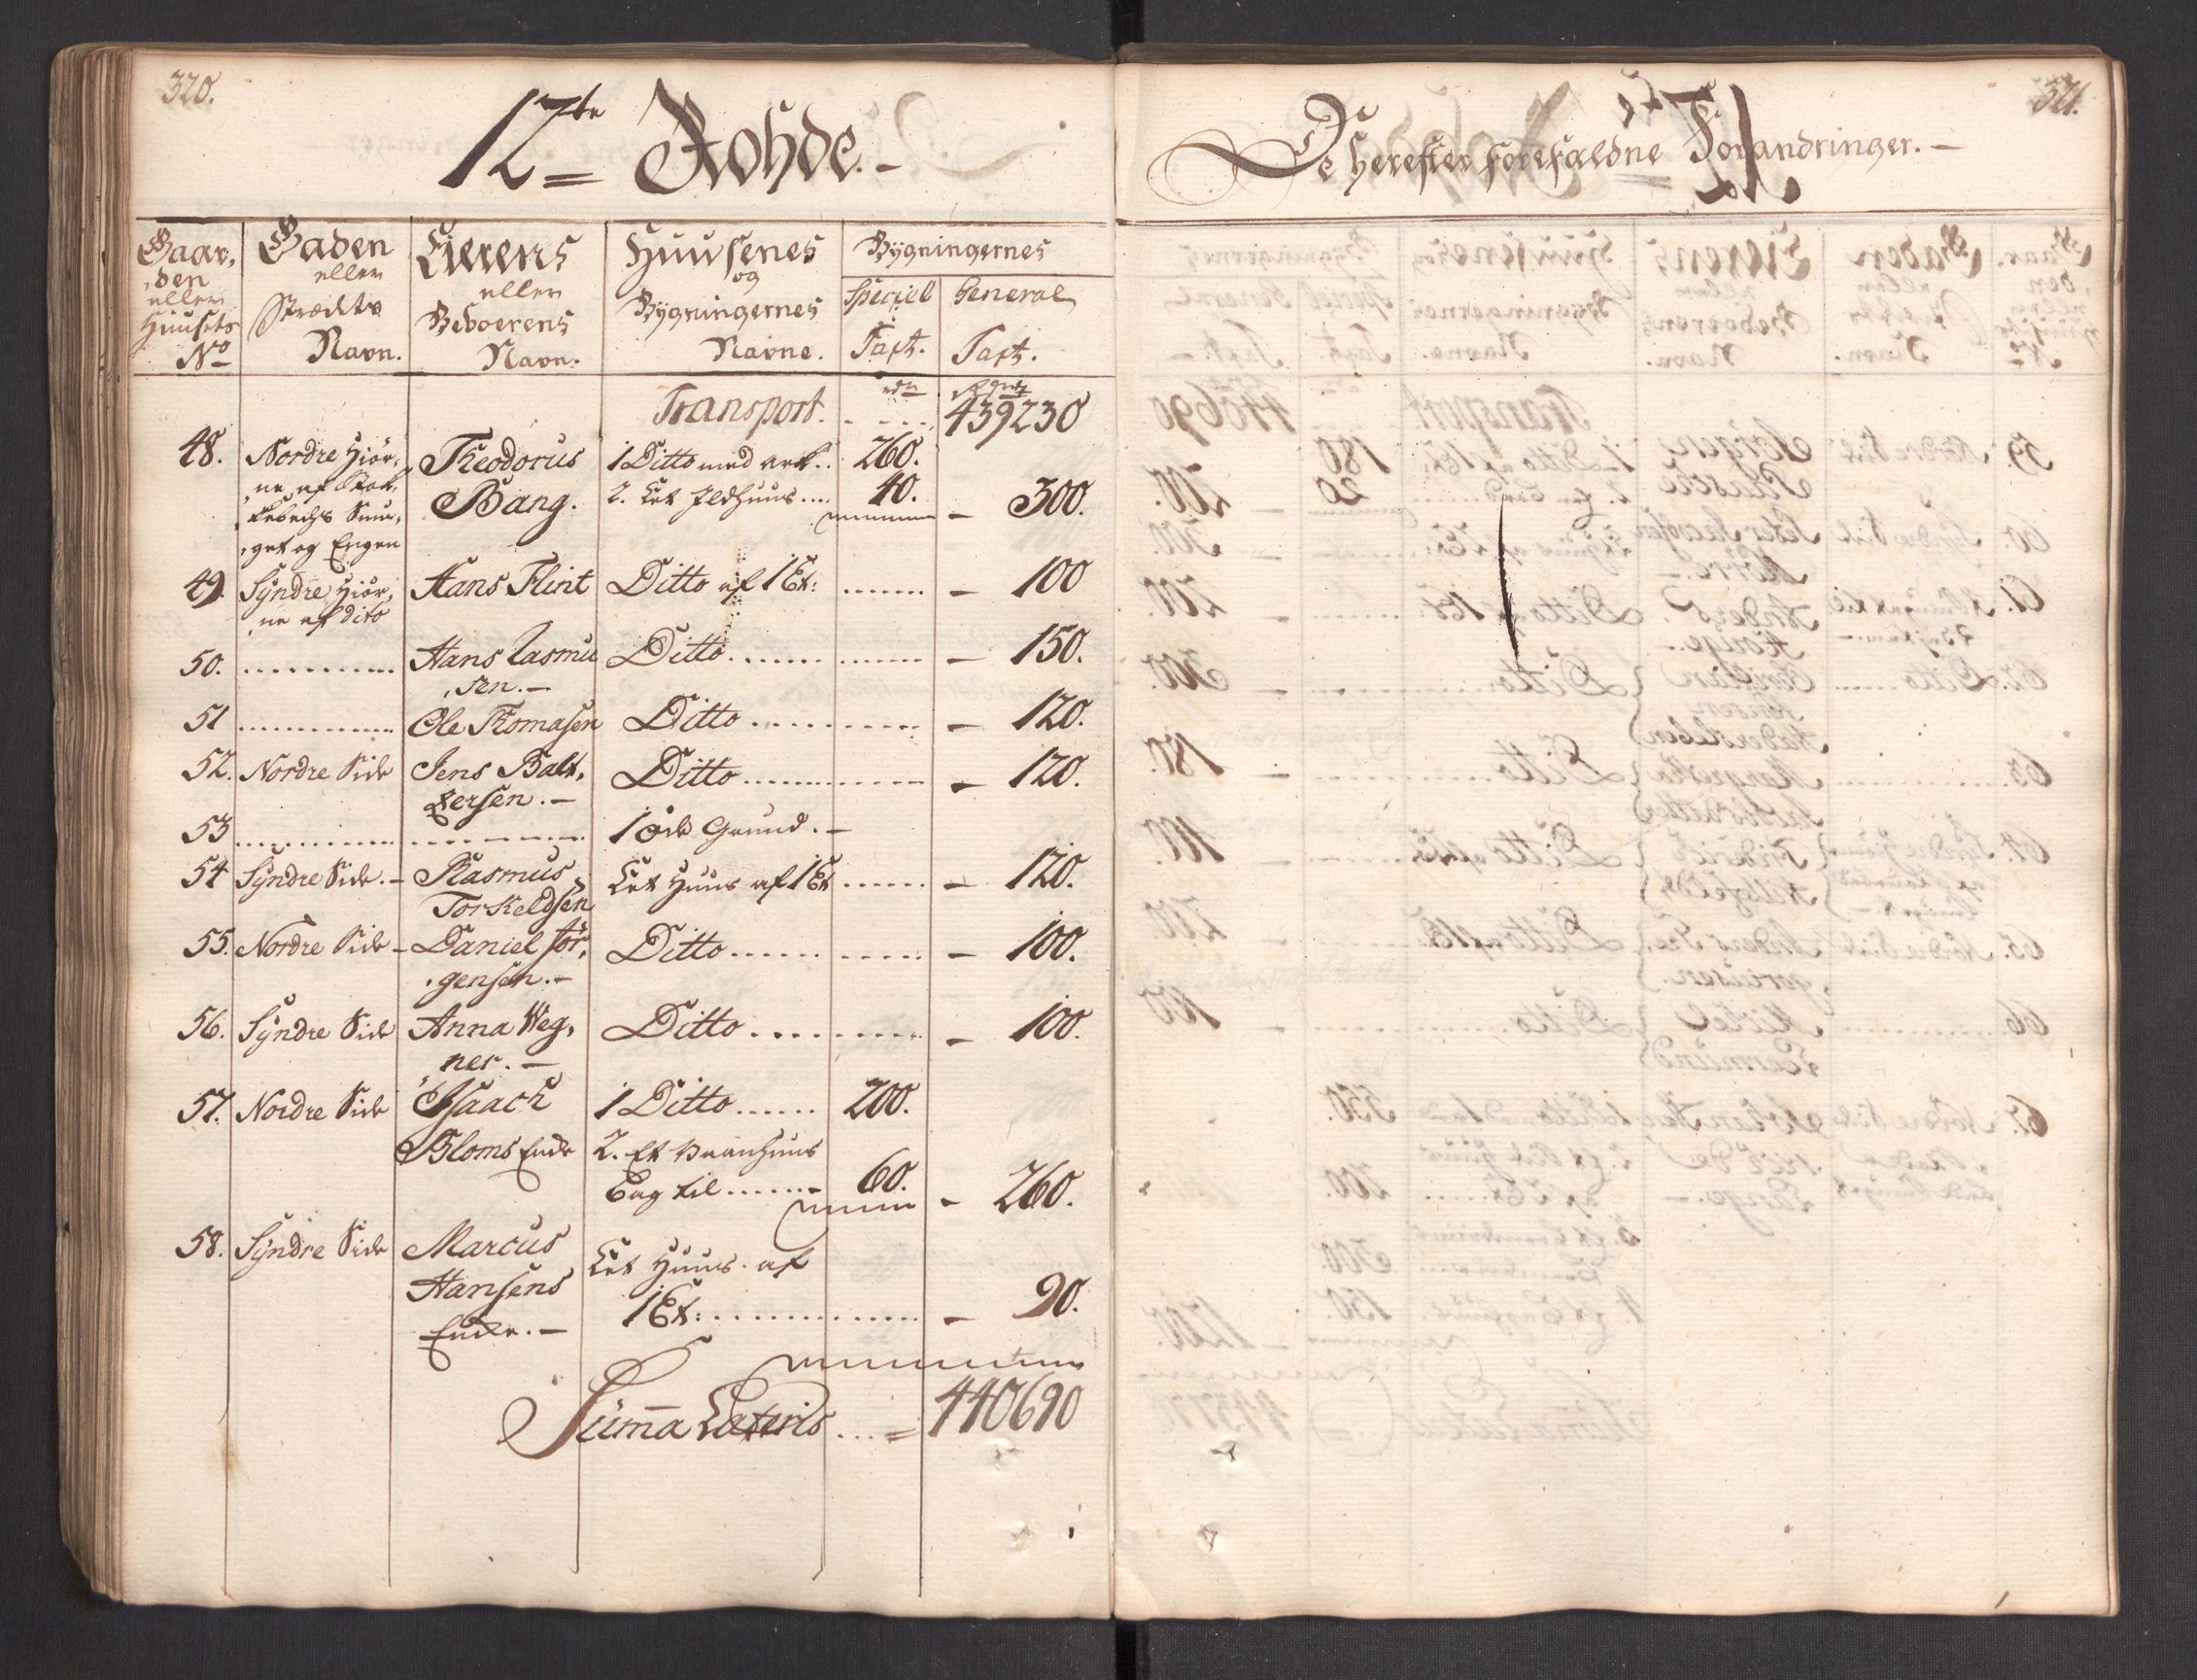 320.
12te Rohde.
Gaar,
den
eller
Huusets
No
Gaden
eller
Strædets
Navn.
Eierens
eller
Beboerens
Navn.
Huusenes
og
Bygningernes
Navne.
Bygningernes
Speciel
Taxt.
General
Taxt.
Transport. 439230
48. Nordre Hiör, Theodorus 1 Ditto med 260.
ne af
Bang. 2. Let Ildhuus .... 40. – 300.
get og Engen
49 Syndre Hiör, Hans Flint Ditto af 1 Et: ...... – 100
ne af dito
50. .......... Hans Rasmu Ditto ........... – 150.
sen. –
51 .......... Ole Thomasen Ditto ........... – 120.
52. Nordre Side Jens Balt, Ditto ........... – 120.
zersen. –
53 .......... .......... 1 öde Grund. –
54 Syndre Side. – Rasmus Let Huus af 1 Et ...... – 120.
Torkeldsen
55. Nordre Side – Daniel Jör, Ditto ........... – 100.
gensen. –
56. Syndre Side Anna Weg, Ditto ........... – 100.
ner. –
57. Nordre Side Isaach 1 Ditto ...... 200.
Bloms Enke 2. Et
til ...... 60. – 260.
58. Syndre Side Marcus Let Huus af
Hansens 1 Et: ........... – 90.
Enke. –
Summa Lateris ... = 440690
321.
De herefter forefaldne Forandringer. –